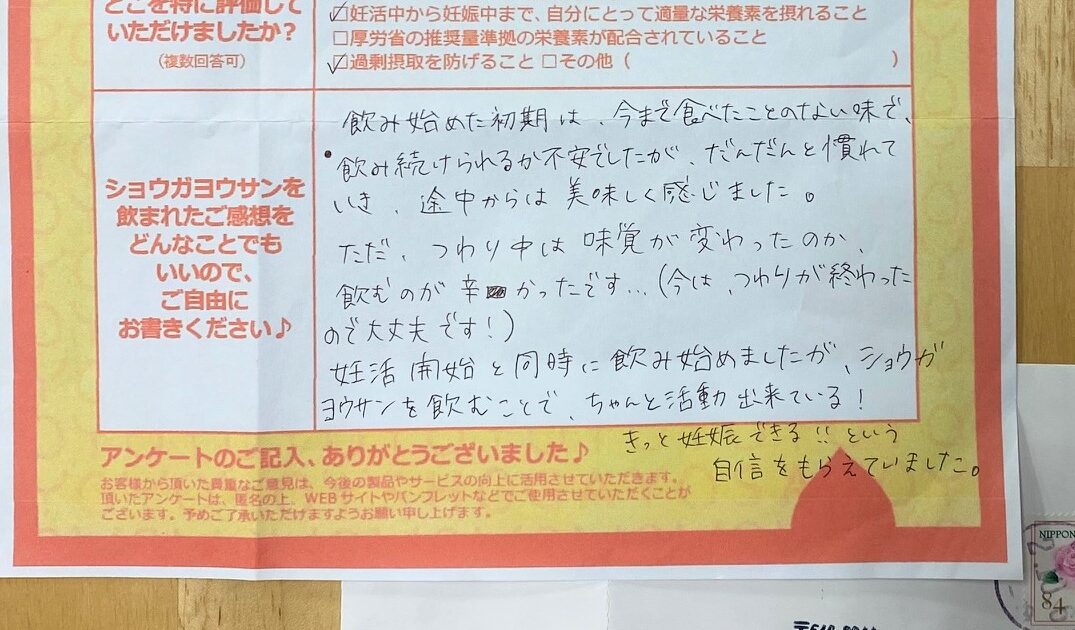 どこを特に評価して
いただけましたか？
（複数回答可）
☑妊活中から妊娠中まで、自分にとって適量な栄養素を摂れること
□厚労省の推奨量準拠の栄養素が配合されていること
☑過剰摂取を防げること □その他（　）
ショウガヨウサンを
飲まれたご感想を
どんなことでも
いいので、
ご自由に
お書きください♪
飲み始めた初期は、今まで食べたことのない味で、
・飲み続けられるか不安でしたが、だんだんと慣れて
いき、途中からは美味しく感じました。
ただ、つわり中は味覚が変わったのか、
飲むのが辛かったです…（今は、つわりが終わった
ので大丈夫です！）
妊活開始と同時に飲み始めましたが、ショウガ
ヨウサンを飲むことで、ちゃんと活動出来ている！
きっと妊娠できる!!という
自信をもらえていました。
アンケートのご記入、ありがとうございました♪
お客様から頂いた貴重なご意見は、今後の製品やサービスの向上に活用させていただきます。
頂いたアンケートは、匿名の上、WEBサイトやパンフレットなどでご使用させていただくことが
ございます。予めご了承いただけますようお願い申し上げます。
NIPPON
84